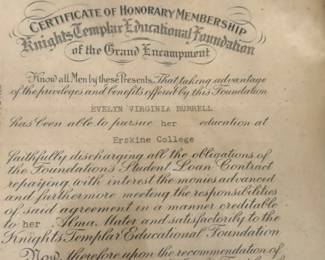 CERTIFICATE OF HONORARY MEMBERSHIP
Knights Templar Educational Foundation
of the Grand Encampment
Know all Men by these Presents, That taking advantage
of the privileges and benefits offered by this Foundation
EVELYN VIRGINIA BURRELL
has been able to pursue her education at
Erskine College
faithfully discharging all the obligations of
the Foundation's Student Loan Contract
repaying with interest the monies advanced
and furthermore meeting the responsibilities
of said agreement in a manner creditable
to her Alma Mater and satisfactorily to the
Knights Templar Educational Foundation
Now, therefore upon the recommendation of